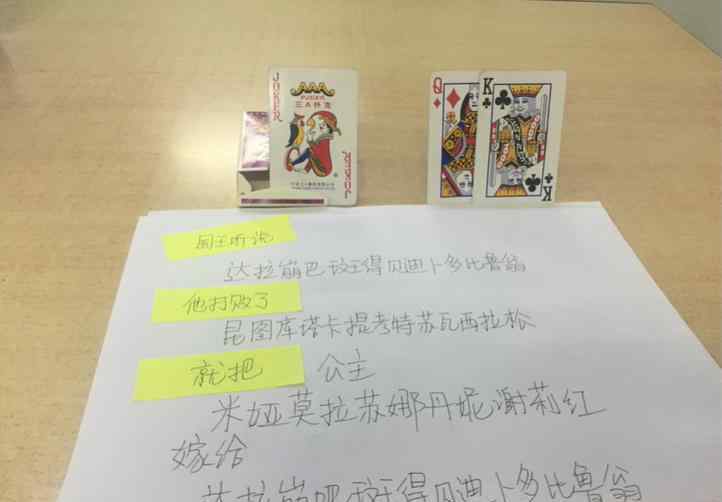 JOKER
三A扑克
JOKER
Q
K
K
国王听说
达拉崩巴斑得贝迪卜多比鲁翁
他打败了
昆图库塔卡提考特苏瓦西拉松
就把 公主
米娅莫拉苏娜丹妮谢莉红
嫁给
达拉崩吧斑得贝迪卜多比鲁翁